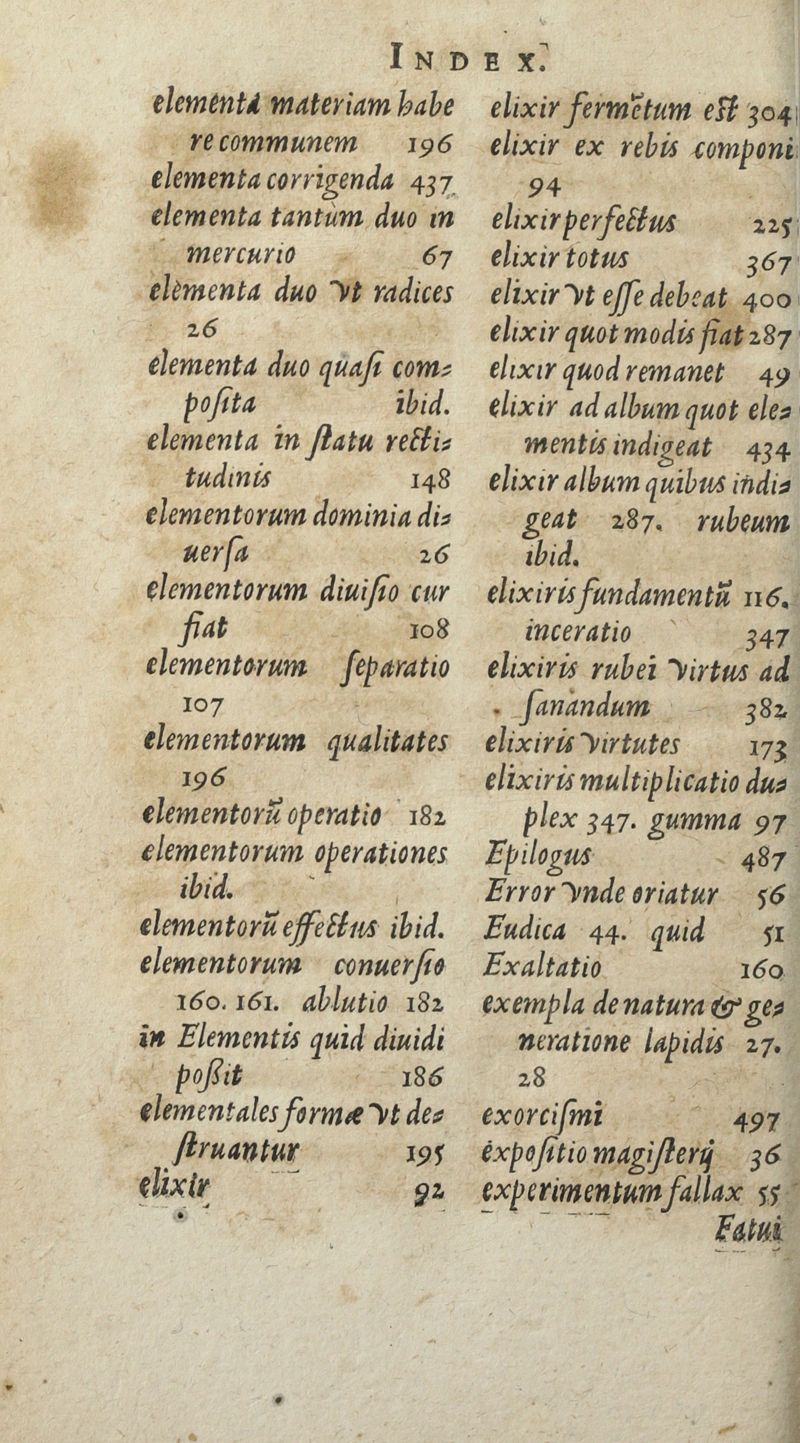 INDEX.
elementa materiam habe
re communem 196
elementa corrigenda 437
elementa tantùm duo in
mercurio 67
elementa duo vt radices
26
elementa duo quaſi com⸗
poſita ibid.
elementa in ſtatu recti⸗
tudinis 148
elementorum dominia di⸗
uerſa 26
elementorum diuiſio cur
fiat 108
elementorum ſeparatio
107
elementorum qualitates
196
elementorū operatio 182
elementorum operationes
ibid.
elementorū effectus ibid.
elementorum conuerſio
160. 161. ablutio 182
in Elementis quid diuidi
poſſit 186
elementales formæ vt de⸗
ſtruantur 195
elixir 92
elixir fermētum eſt 304
elixir ex rebis componi
94
elixir perfectus 225
elixir totus 367
elixir vt eſſe debeat 400
elixir quot modis fiat 287
elixir quod remanet 49
elixir ad album quot ele⸗
mentis indigeat 434
elixir album quibus indi⸗
geat 287. rubeum
ibid.
elixiris fundamentū 116.
inceratio 347
elixiris rubei virtus ad
ſanandum 382
elixiris virtutes 173
elixiris multiplicatio du⸗
plex 347. gumma 97
Epilogus 487
Error vnde oriatur 56
Eudica 44. quid 51
Exaltatio 160
exempla de natura & ge⸗
neratione lapidis 27.
28
exorciſmi 497
expoſitio magiſterij 36
experimentum fallax 55
Fatui